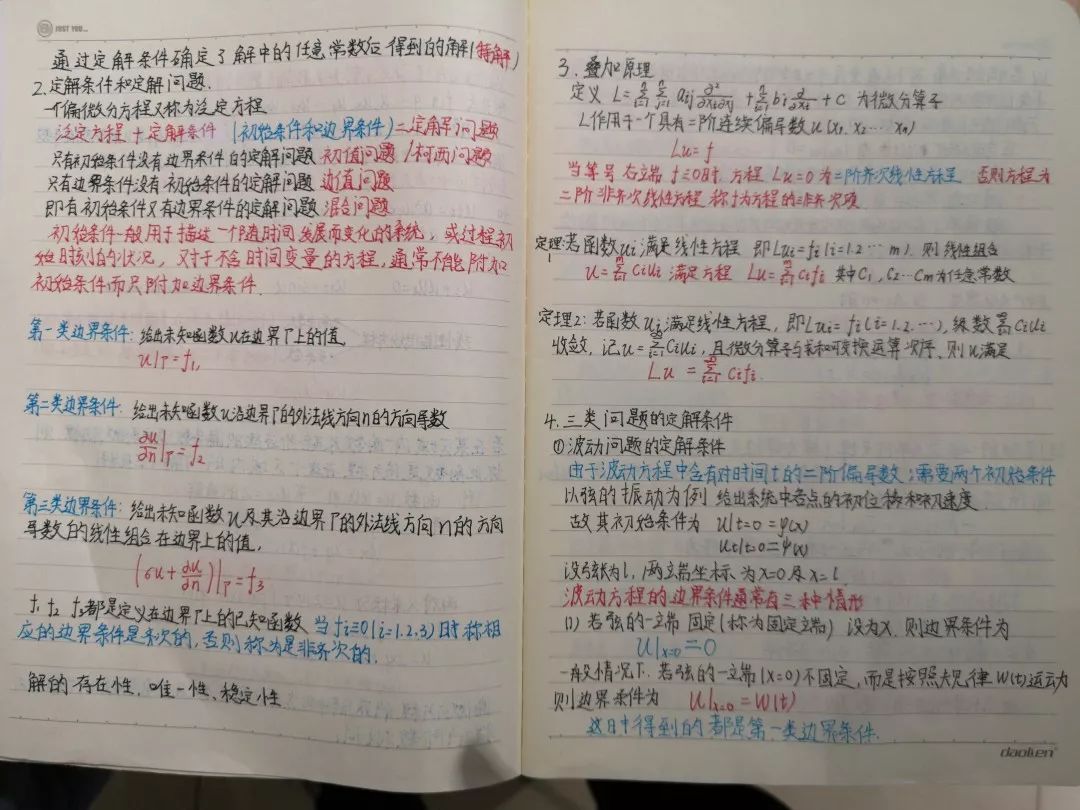 JUST YOU...
通过定解条件确定了解中的任意常数后得到的解(特解)
2.定解条件和定解问题.
一个偏微分方程又称为泛定方程
泛定方程+定解条件 (初始条件和边界条件)=定解问题
只有初始条件没有边界条件的定解问题 初值问题/柯西问题
只有边界条件没有初始条件的定解问题 边值问题
即有初始条件又有边界条件的定解问题 混合问题
初始条件一般用于描述一个随时间发展而变化的系统,或过程初
始时刻的状况,对于不含时间变量的方程,通常不能附加
初始条件而只附加边界条件.
第一类边界条件: 给出未知函数u在边界Γ上的值,
u|Γ=f₁,
第二类边界条件: 给出未知函数u沿边界Γ的外法线方向n的方向导数
∂u/∂n|Γ=f₂
第三类边界条件: 给出未知函数u及其沿边界Γ的外法线方向n的方向
导数的线性组合在边界上的值,
(σu+∂u/∂n)|Γ=f₃
f₁ f₂ f₃都是定义在边界Γ上的已知函数 当fᵢ≡0(i=1.2.3)时称相
应的边界条件是齐次的,否则称为是非齐次的.
解的存在性,唯一性,稳定性
3.叠加原理
定义 L=∑ⁿᵢ₌₁∑ⁿⱼ₌₁ aᵢⱼ ∂²/∂xᵢ∂xⱼ+∑ⁿᵢ₌₁ bᵢ ∂/∂xᵢ+C 为微分算子
L作用于一个具有二阶连续偏导数u(x₁.x₂…xₙ)
Lu=f
当等号右端f≡0时,方程Lu=0为二阶齐次线性方程 否则方程为
二阶非齐次线性方程 称f为方程的非齐次项
定理1:若函数uᵢ满足线性方程 即Luᵢ=fᵢ(i=1.2…m).则线性组合
u=∑ᵐᵢ₌₁Cᵢuᵢ满足方程 Lu=∑ᵐᵢ₌₁Cᵢfᵢ 其中C₁,C₂…Cm为任意常数
定理2:若函数uᵢ满足线性方程,即Luᵢ=fᵢ(i=1.2.…),级数∑^∞ᵢ₌₁Cᵢuᵢ
收敛,记u=∑^∞ᵢ₌₁Cᵢuᵢ,且微分算子与求和可交换运算次序,则u满足
Lu=∑^∞ᵢ₌₁Cᵢfᵢ.
4.三类问题的定解条件
①波动问题的定解条件
由于波动方程中含有对时间t的二阶偏导数;需要两个初始条件
以弦的振动为例 给出系统中各点的初位移和初速度
故其初始条件为 u|t=0=φ(x)
ut|t=0=ψ(x)
设弦长为l,两端坐标为x=0及x=l.
波动方程的边界条件通常有三种情形
(1) 若弦的一端固定(称为固定端) 设为x.则边界条件为
u|x=0=0
一般情况下.若弦的一端(x=0)不固定,而是按照规律W(t)运动
则边界条件为 u|x=0=W(t)
这中得到的都是第一类边界条件.
daolien